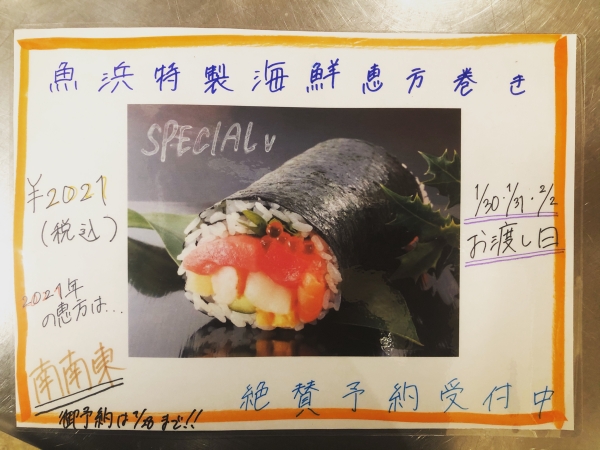 魚浜特製海鮮恵方巻き
SPECIAL
¥2021
(税込)
1/30・1/31・2/2
お渡し日
2021年
の恵方は...
南南東
絶賛予約受付中
御予約は1/28まで!!